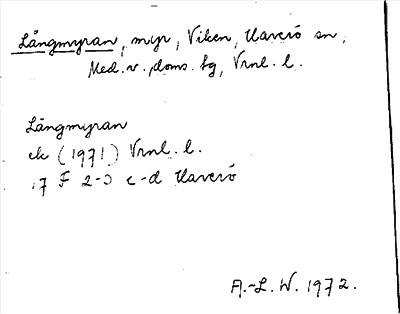 Långmyran, myr, Viken, Haverö sn,
Med. v. doms. tg, Vrnl. l.
Långmyran
ek (1971) Vrnl. l.
17 F 2-3 c-d Haverö
A.-L. W. 1972.